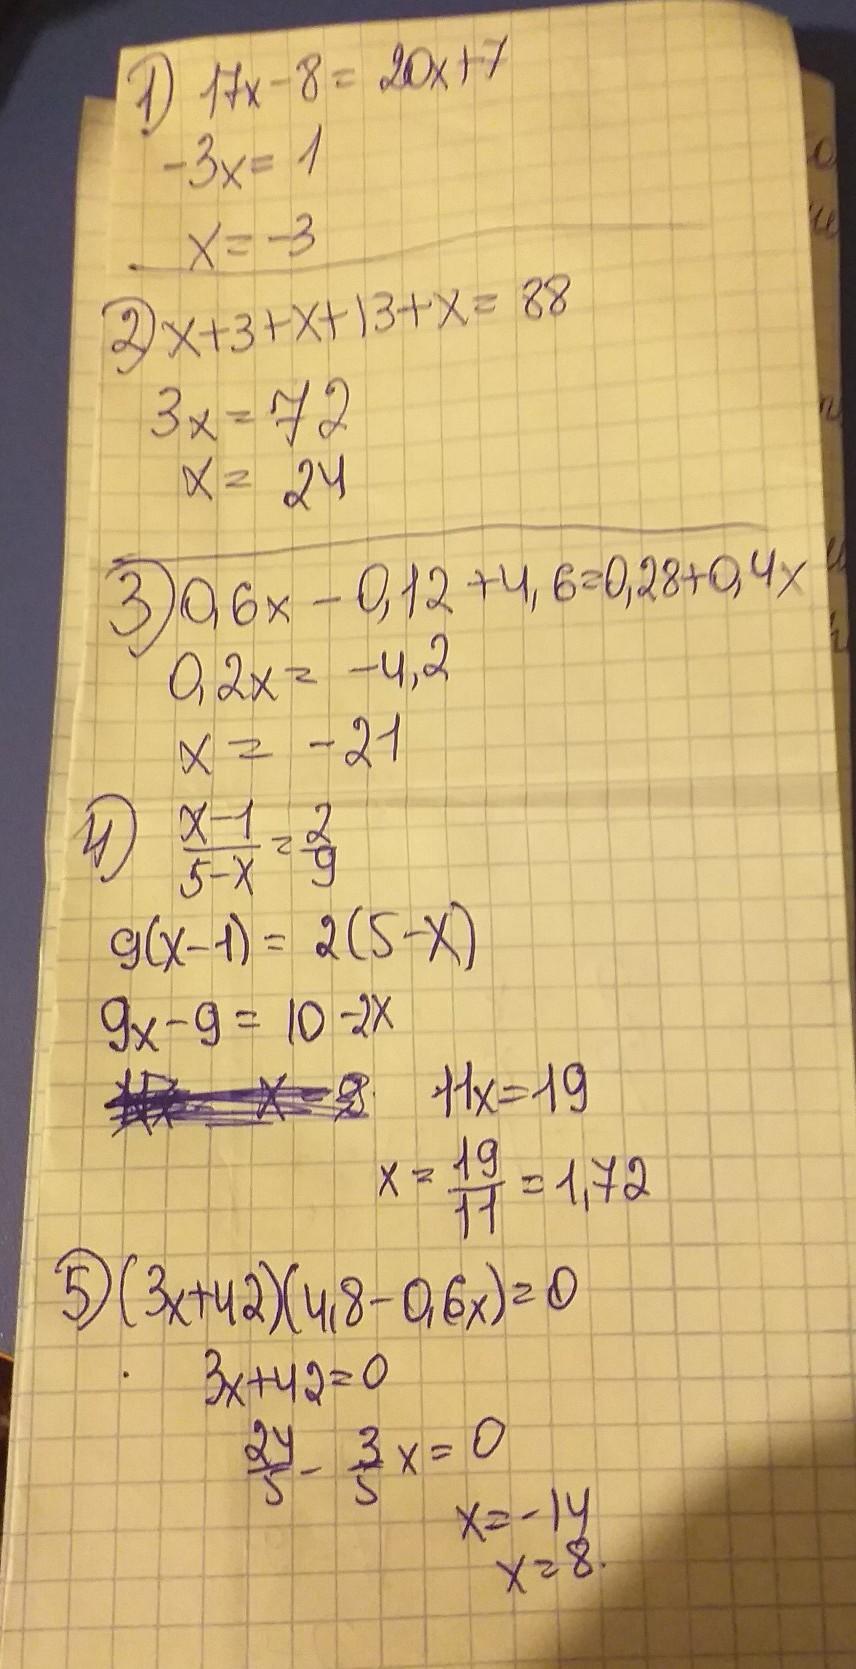 1) 17x-8= 20x+7
-3x= 1
x= -3
2) x+3+x+13+x= 88
3x= 72
x= 24
3) 0,6x - 0,12 +4,6=0,28+0,4x
0,2x= -4,2
x = -21
4) (x-1)/(5-x) = 2/9
9(x-1)= 2(5-x)
9x-9= 10-2x
11x=19
x= 19/11 = 1,72
5) (3x+42)(4,8-0,6x)=0
3x+42=0
24/5 - 3/5 x= 0
x=-14
x=8.